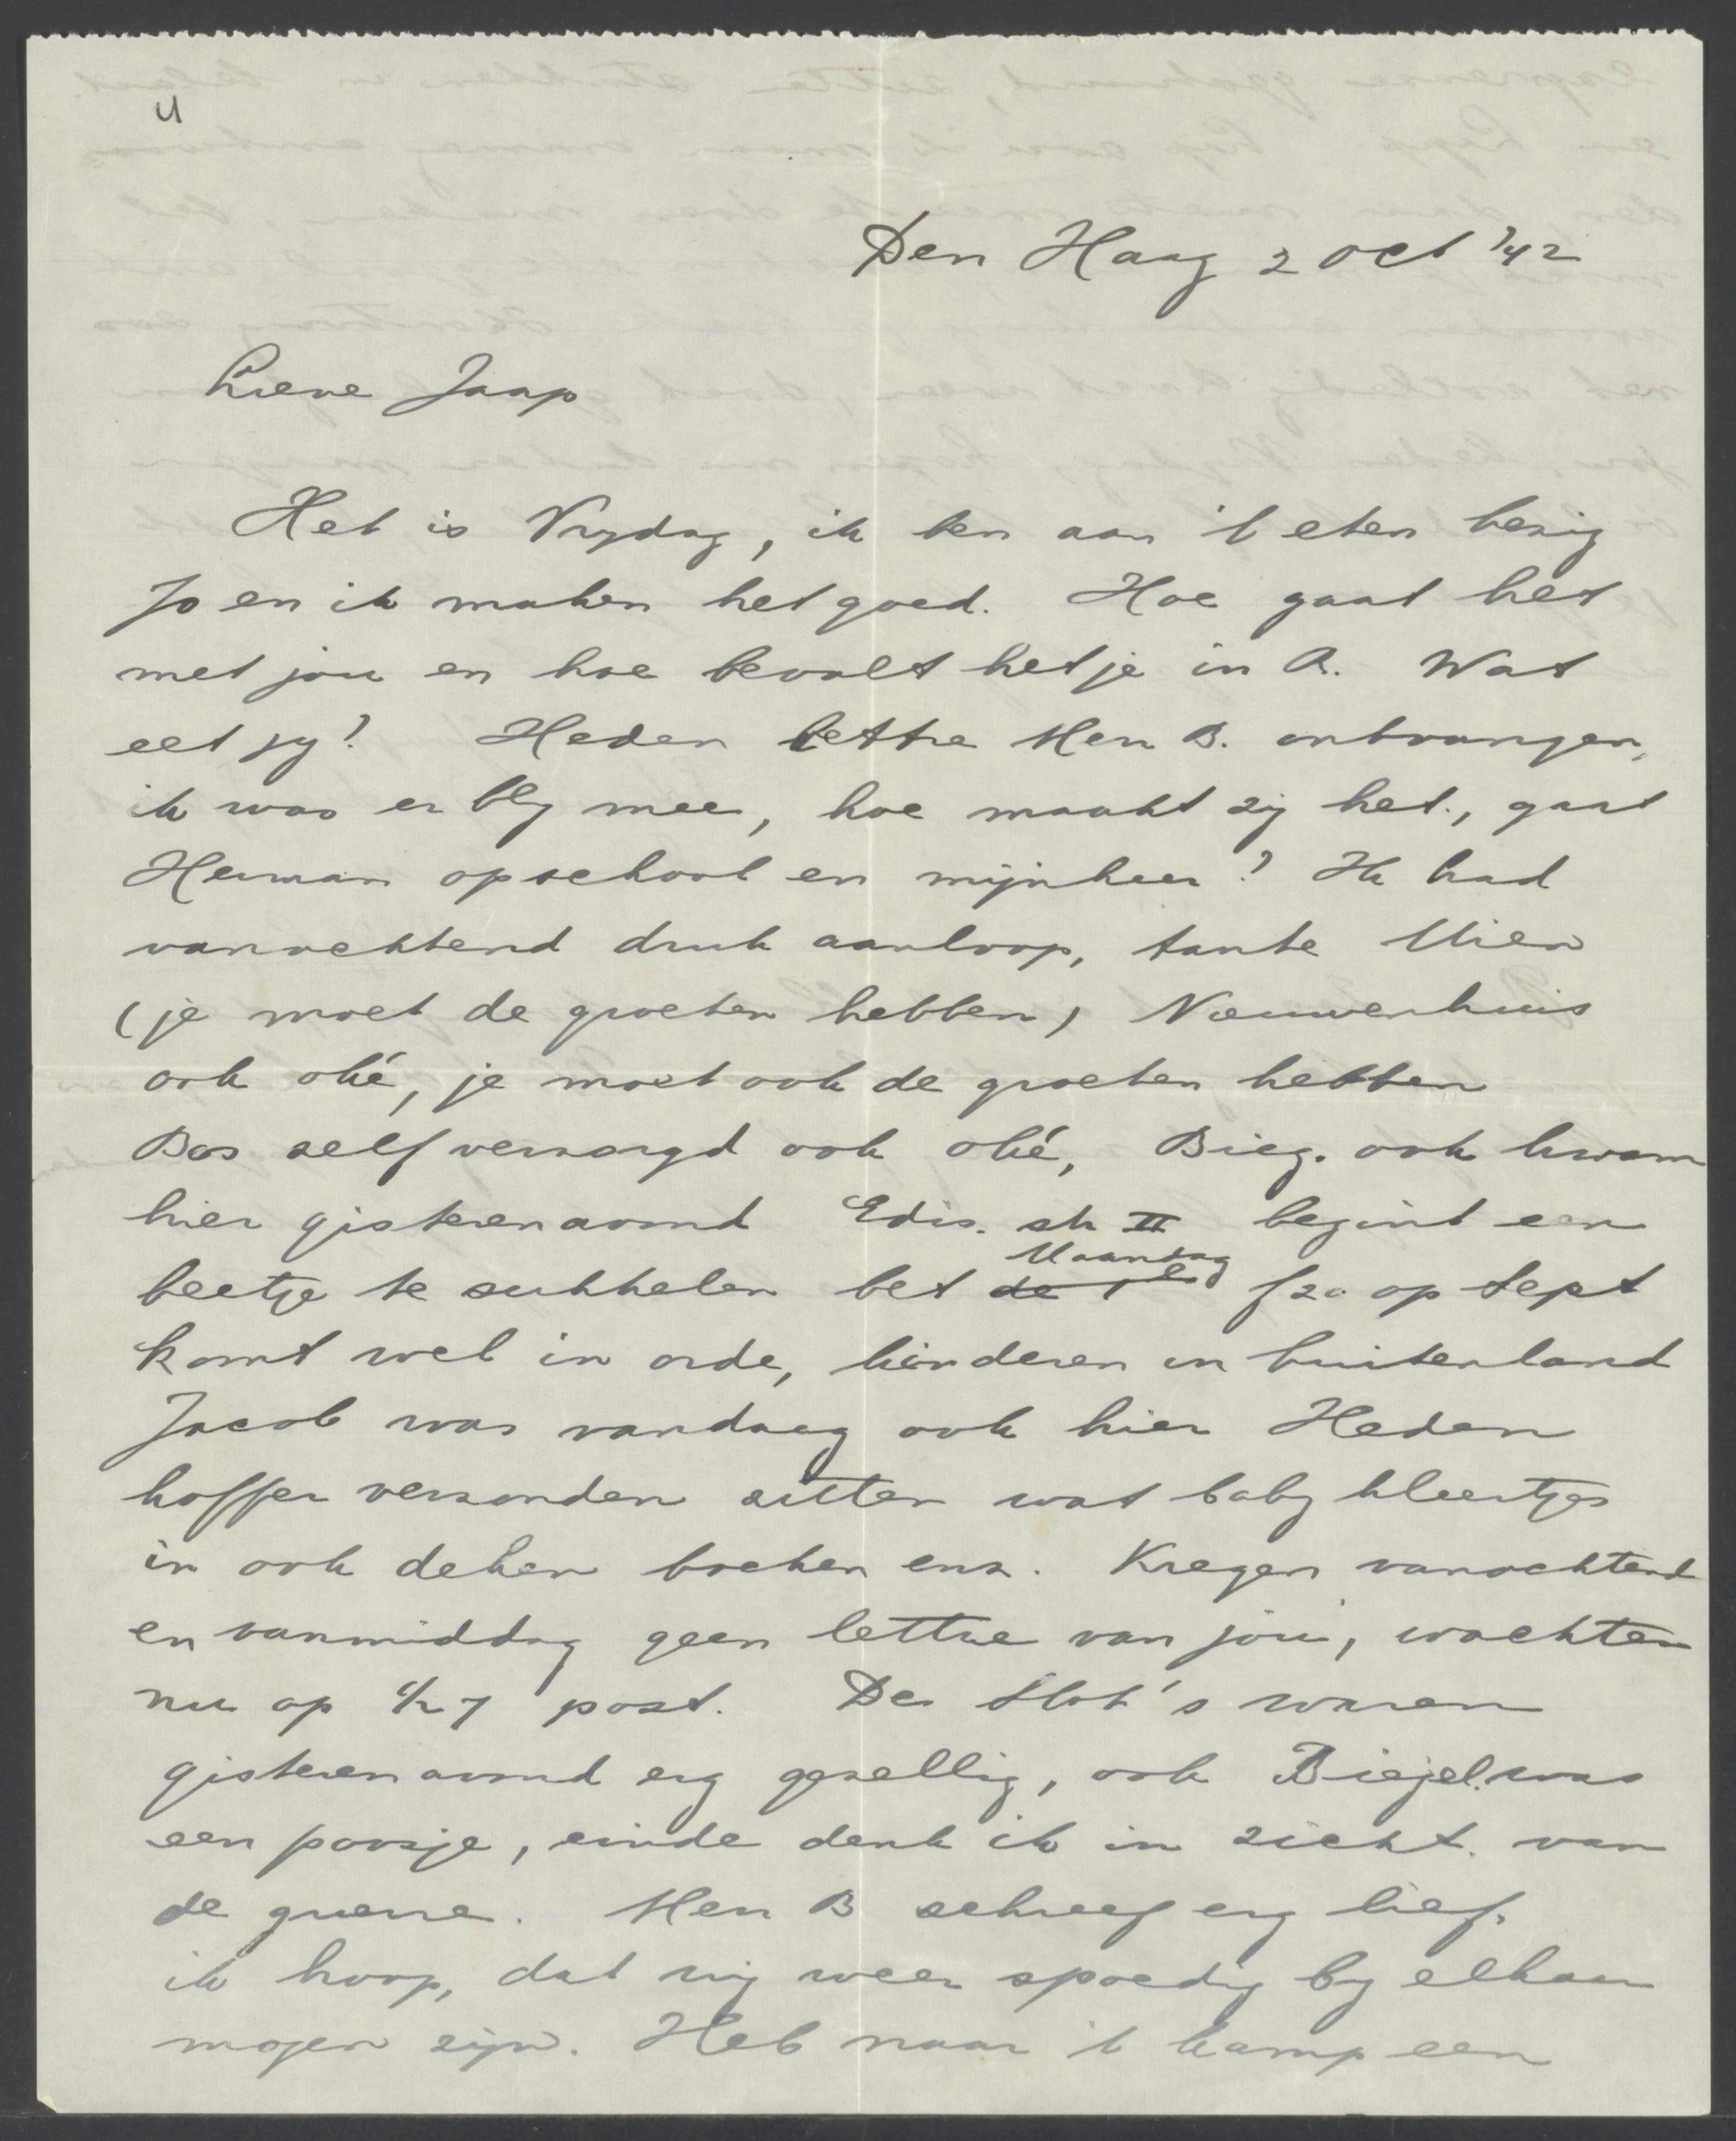 4
Den Haag 2 Oct '42
Lieve Jaap
Het is Vrydag, ik ben aan 't eten bezig
Jo en ik maken het goed. Hoe gaat het
met jou en hoe bevalt het je in A. Wat
eet jy? Heden lettre Mev B. ontvangen,
ik was er bly mee, hoe maakt zij het, gaat
Herman op school en mijnheer? Ik had
vanochtend druk aanloop, tante Mien
(je moet de groeten hebben) Nieuwenhuis
ook oké, je moet ook de groeten hebben
Bos zelf verzorgd ook oké, Bieg. ook kwam
hier gisterenavond Edis. str II begint een
beetje te sukkelen bet Maandag f20 op Sept
komt wel in orde, kinderen in buitenland
Jacob was vandaag ook hier Heden
koffer verzonden zitten wat baby kleertjes
in ook deken boeken enz. Kregen vanochtend
en vanmiddag geen lettre van jou, wachten
nu op ½ 7 post. De Slot's waren
gisterenavond erg gezellig, ook Biegel. was
een poosje, einde denk ik in zicht. van
de guerre. Mev B schreef erg lief.
ik hoop, dat wij weer spoedig by elkaar
mogen zijn. Heb naar 't kamp een